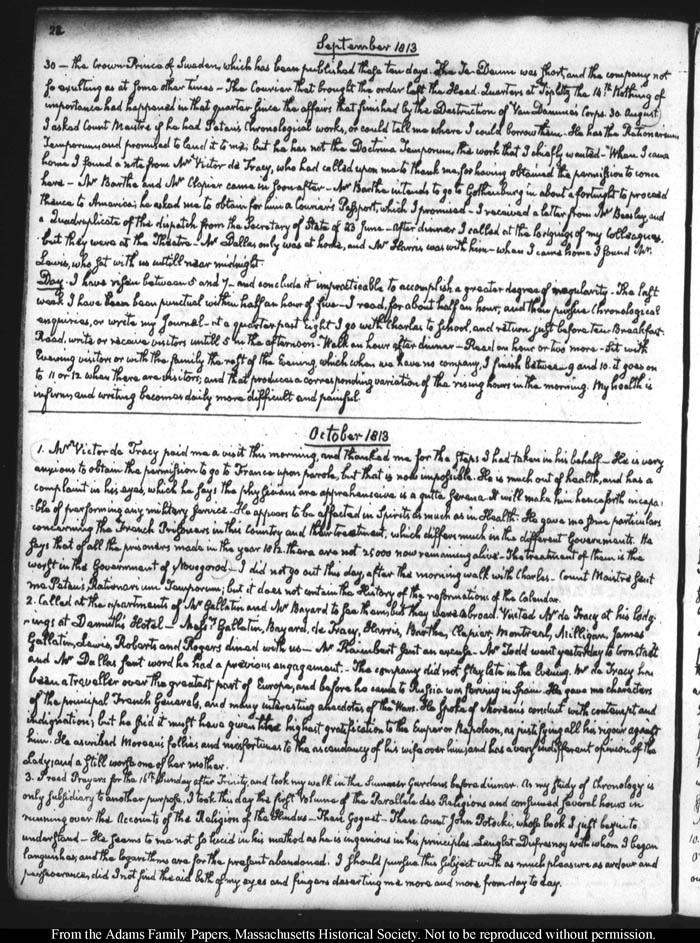 28
September 1813
30 — the Crown Prince of Sweden, which has been published these ten days. The Te-Deum was short, and the company not
so exulting as at some other times — The Courier that brought the order left the Head-Quarters at Töplitz the 14th Nothing of
importance had happened in that quarter since the affairs that finished by the Destruction of Vandamme's Corps. 30 August
I asked Count Maistre if he had Petau's Chronological works, or could tell me where I could borrow them. He has the Rationarium
Temporum, and promised to lend it to me; but he has not the Doctrina Temporum, the work that I chiefly wanted — When I came
home I found a note from Mr Victor de Tracy, who had called upon me to thank me for having obtained the permission to come
here — Mr Barthe and Mr Clapier came in soon after — Mr Barthe intends to go to Gothenburg in about a fortnight to proceed
thence to America; he asked me to obtain for him a Courier's Passport, which I promised — I received a letter from Mr Beasley, and
a Quadruplicate of the dispatch from the Secretary of State of 23 June — After dinner I called at the lodgings of my Colleagues,
but they were at the Theatre — Mr Dallas only was at home, and Mr Harris was with him — when I came home I found Mr.
Lewis, who sat with us untill near midnight.
Day. I have risen between 5 and 7 — and conclude it impracticable to accomplish a greater degree of regularity — The last
week I have been punctual within half an hour of five — I read, for about half an hour, and then pursue Chronological
enquiries, or wrote my Journal — at a quarter past Eight I go with Charles to School, and return just before ten Breakfast.
Read, write or receive visitors untill 5 in the afternoon — Walk an hour after dinner — Read an hour or two more — Sit with
Evening visitors or with the family the rest of the Evening, which when we have no company, I finish between 9 and 10. it goes on
to 11 or 12 when there are visitors; and that produces a corresponding variation of the rising hours in the morning. My health is
infirm, and writing becomes daily more difficult and painful.
October 1813
1. Mr Victor de Tracy paid me a visit this morning, and thanked me for the steps I had taken in his behalf — He is very
anxious to obtain the permission to go to France upon parole, but that is now impossible. He is much out of health, and has a
complaint in his eyes, which he says the physicians are apprehensive is a gutta serena. It will make him henceforth incapa-
-ble of performing any military service — He appears to be affected in Spirits as much as in Health. He gave me some particulars
concerning the French Prisoners in this Country and their treatment, which differs much in the different Governments. He
says that of all the prisoners made in the year 1812. there are not 25000 now remaining alive — The treatment of them is the
worst in the Government of Novogorod — I did not go out this day, after the morning walk with Charles — Count Maistre sent
me Petau's Rationarium Temporum; but it does not contain the History of the reformations of the Calendar.
2. Called at the apartments of Mr Gallatin and Mr Bayard to see them, but they were abroad. Visited Mr de Tracy at his lodg-
-ings at Demuth's Hotel — Messrs Gallatin, Bayard, de Tracy, Harris, Barthe, Clapier, Montreal, Milligan, James
Gallatin, Lewis, Roberts and Rogers dined with us — Mr Raimbert sent an excuse — Mr Todd went yesterday to Cronstadt
and Mr Dallas sent word he had a previous engagement — The company did not stay late in the Evening. Mr de Tracy has
been a traveller over the greatest part of Europe, and before he came to Russia was serving in Spain. He gave me characters
of the principal French Generals, and many interesting anecdotes of the Wars. He spoke of Moreau's conduct with contempt and
indignation; but he said it must have given the highest gratification to the Emperor Napoleon, as justifying all his rigour against
him. He ascribed Moreau's follies and misfortunes to the ascendancy of his wife over him, and has a very indifferent opinion of the
Lady, and a still worse one of her mother.
3. I read Prayers for the 16th Sunday after Trinity, and took my walk in the Summer Gardens before dinner. As my study of Chronology is
only subsidiary to another purpose, I took this day the first volume of the Parallele des Religions and consumed several hours in
running over the Accounts of the Religion of the Hindus — Then Goguet — Then Count John Potocki, whose book I just begin to
understand — He seems to me not so lucid in his method as he is ingenious in his principles. Lenglet Dufresnoy, with whom I began
languishes, and the logarithms are for the present abandoned. I should pursue this subject with as much pleasure as ardour and
perseverance, did I not find the aid both of my eyes and fingers deserting me more and more from day to day.
From the Adams Family Papers, Massachusetts Historical Society. Not to be reproduced without permission.